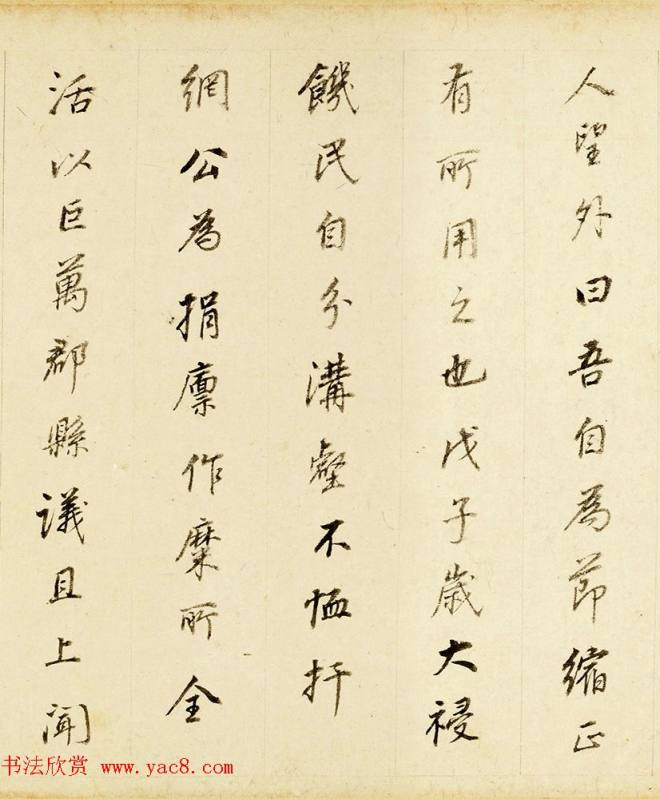 人望外曰吾自為節縮正
有所用之也戊子歲大祲
饑民自分溝壑不恤扞
網公為捐廪作糜所全
活以巨萬郡縣議且上聞
书法欣赏 www.yac8.com